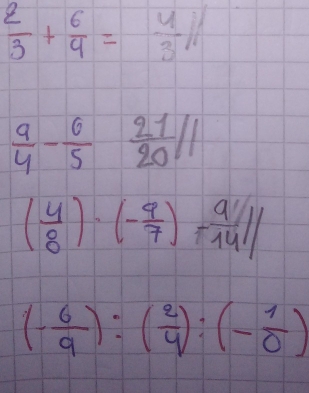 2/3 + 6/9 = 4/3//
9/4 - 6/5 21/20//
(4/8) · (-9/7) -9/14//
(-6/9) : (2/4) : (-1/0)